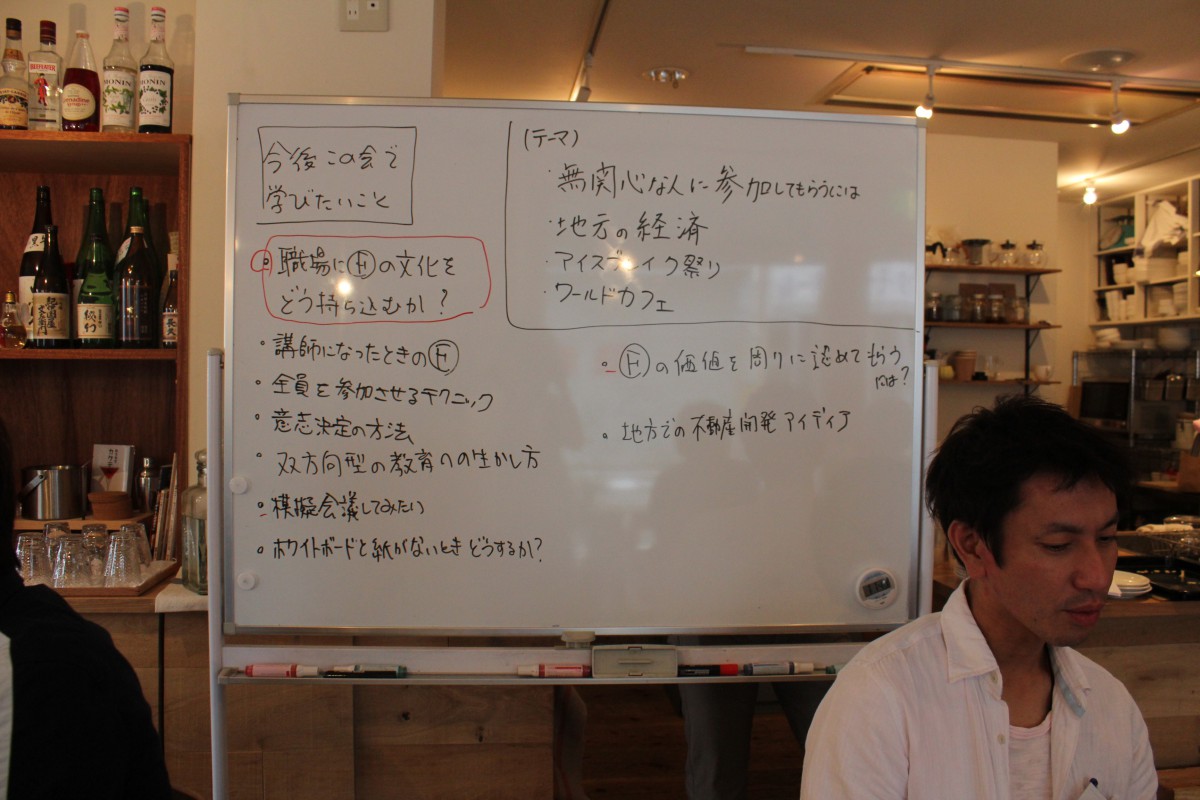 今後この会で
学びたいこと
職場にⒻの文化を
どう持ち込むか?
・講師になったときのⒻ
・全員を参加させるテクニック
・意志決定の方法
・双方向型の教育への生かし方
・模擬会議してみたい
・ホワイトボードと紙がないときどうするか?
(テーマ)
・無関心な人に参加してもらうには
・地元の経済
・アイスブレイク祭り
・ワールドカフェ
・Ⓕの価値を周りに認めてもらう
には?
・地方での不動産開発アイディア
BEEFEATER
MONIN
MONIN